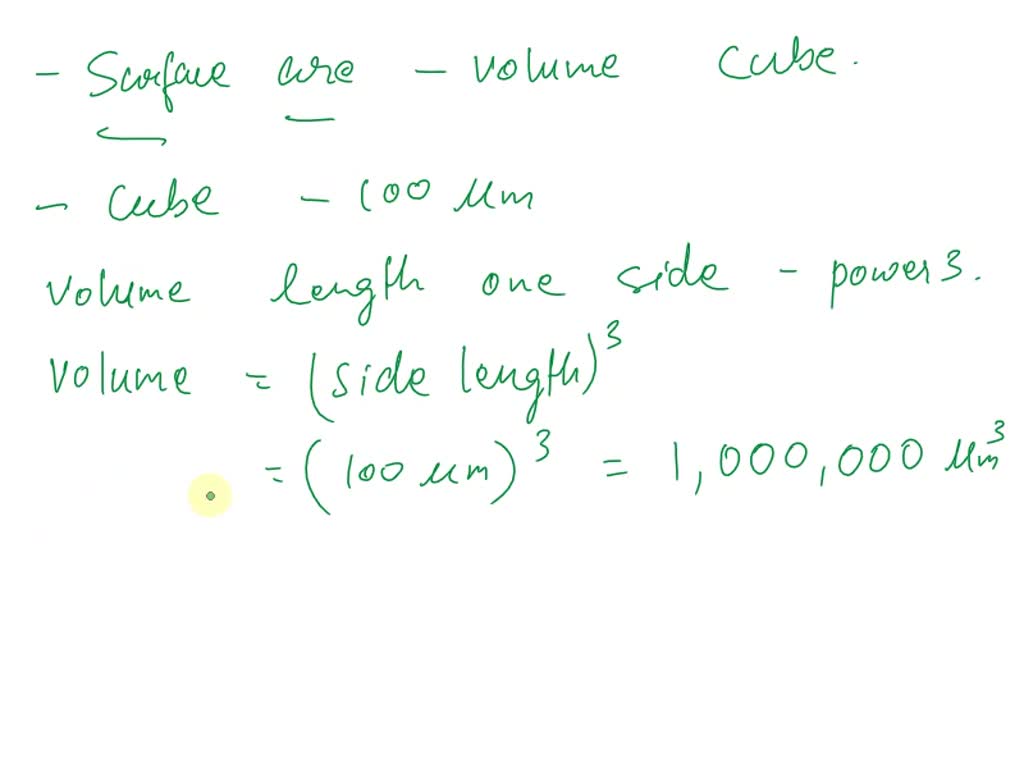 - Surface are - volume cube.
- cube - 100 μm
volume length one side - power 3.
volume = (side length)³
= (100 μm)³ = 1,000,000 μm³